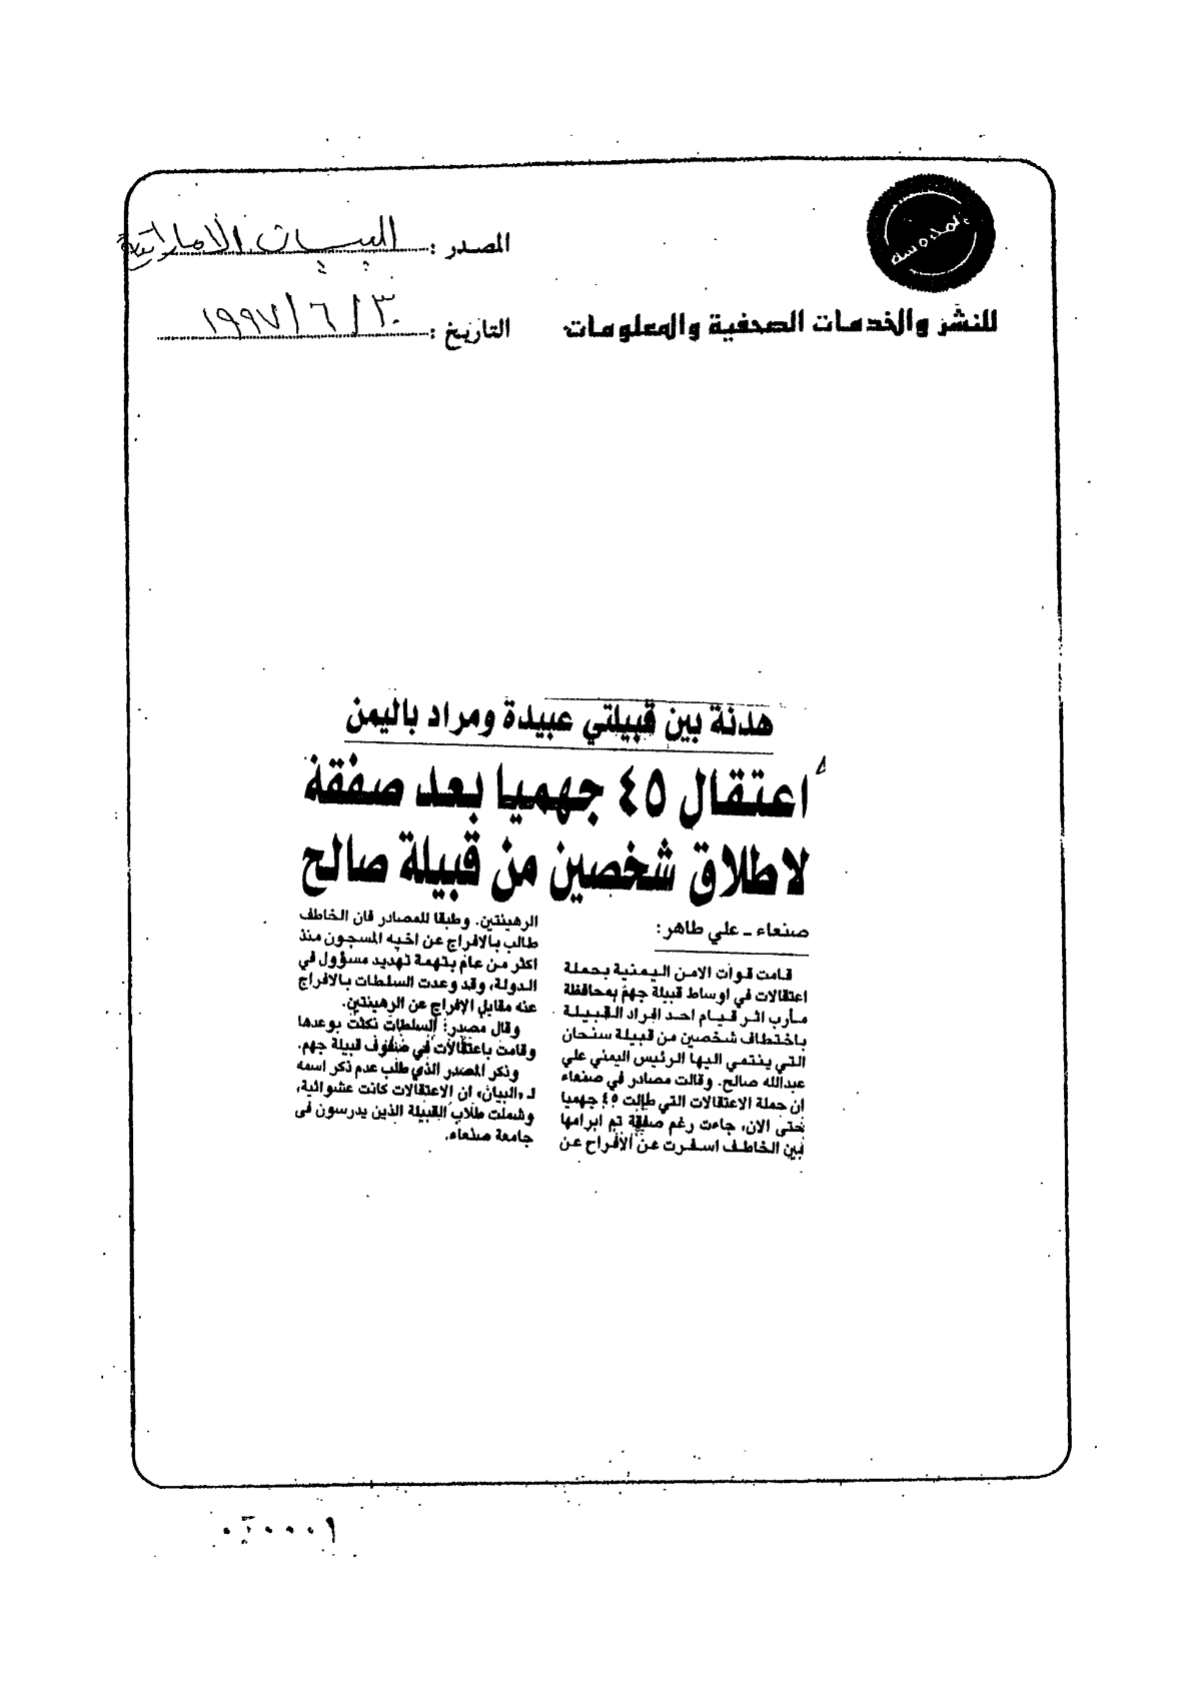 المصدر : البيان الاماراتية
للنشر والخدمات الصحفية والمعلومات
التاريخ : ٣٠ / ٦ / ١٩٩٧
هدنة بين قبيلتي عبيدة ومراد باليمن
اعتقال ٤٥ جهميا بعد صفقة
لاطلاق شخصين من قبيلة صالح
صنعاء ـ علي طاهر:
قامت قوات الامن اليمنية بحملة
اعتقالات في اوساط قبيلة جهم بمحافظة
مأرب اثر قيام احد افراد القبيلة
باختطاف شخصين من قبيلة سنحان
التي ينتمي اليها الرئيس اليمني علي
عبدالله صالح. وقالت مصادر في صنعاء
ان حملة الاعتقالات التي طالت ٤٥ جهميا
حتى الان، جاءت رغم صفقة تم ابرامها
بين الخاطف اسفرت عن الافراح عن
الرهينتين. وطبقا للمصادر فان الخاطف
طالب بالافراج عن اخيه المسجون منذ
اكثر من عام بتهمة تهديد مسؤول في
الدولة، وقد وعدت السلطات بالافراج
عنه مقابل الإفراج عن الرهينتين.
وقال مصدر: السلطات نكثت بوعدها
وقامت باعتقالات في صفوف قبيلة جهم.
وذكر المصدر الذي طلب عدم ذكر اسمه
لـ «البيان» ان الاعتقالات كانت عشوائية،
وشملت طلاب القبيلة الذين يدرسون فى
جامعة صنعاء.